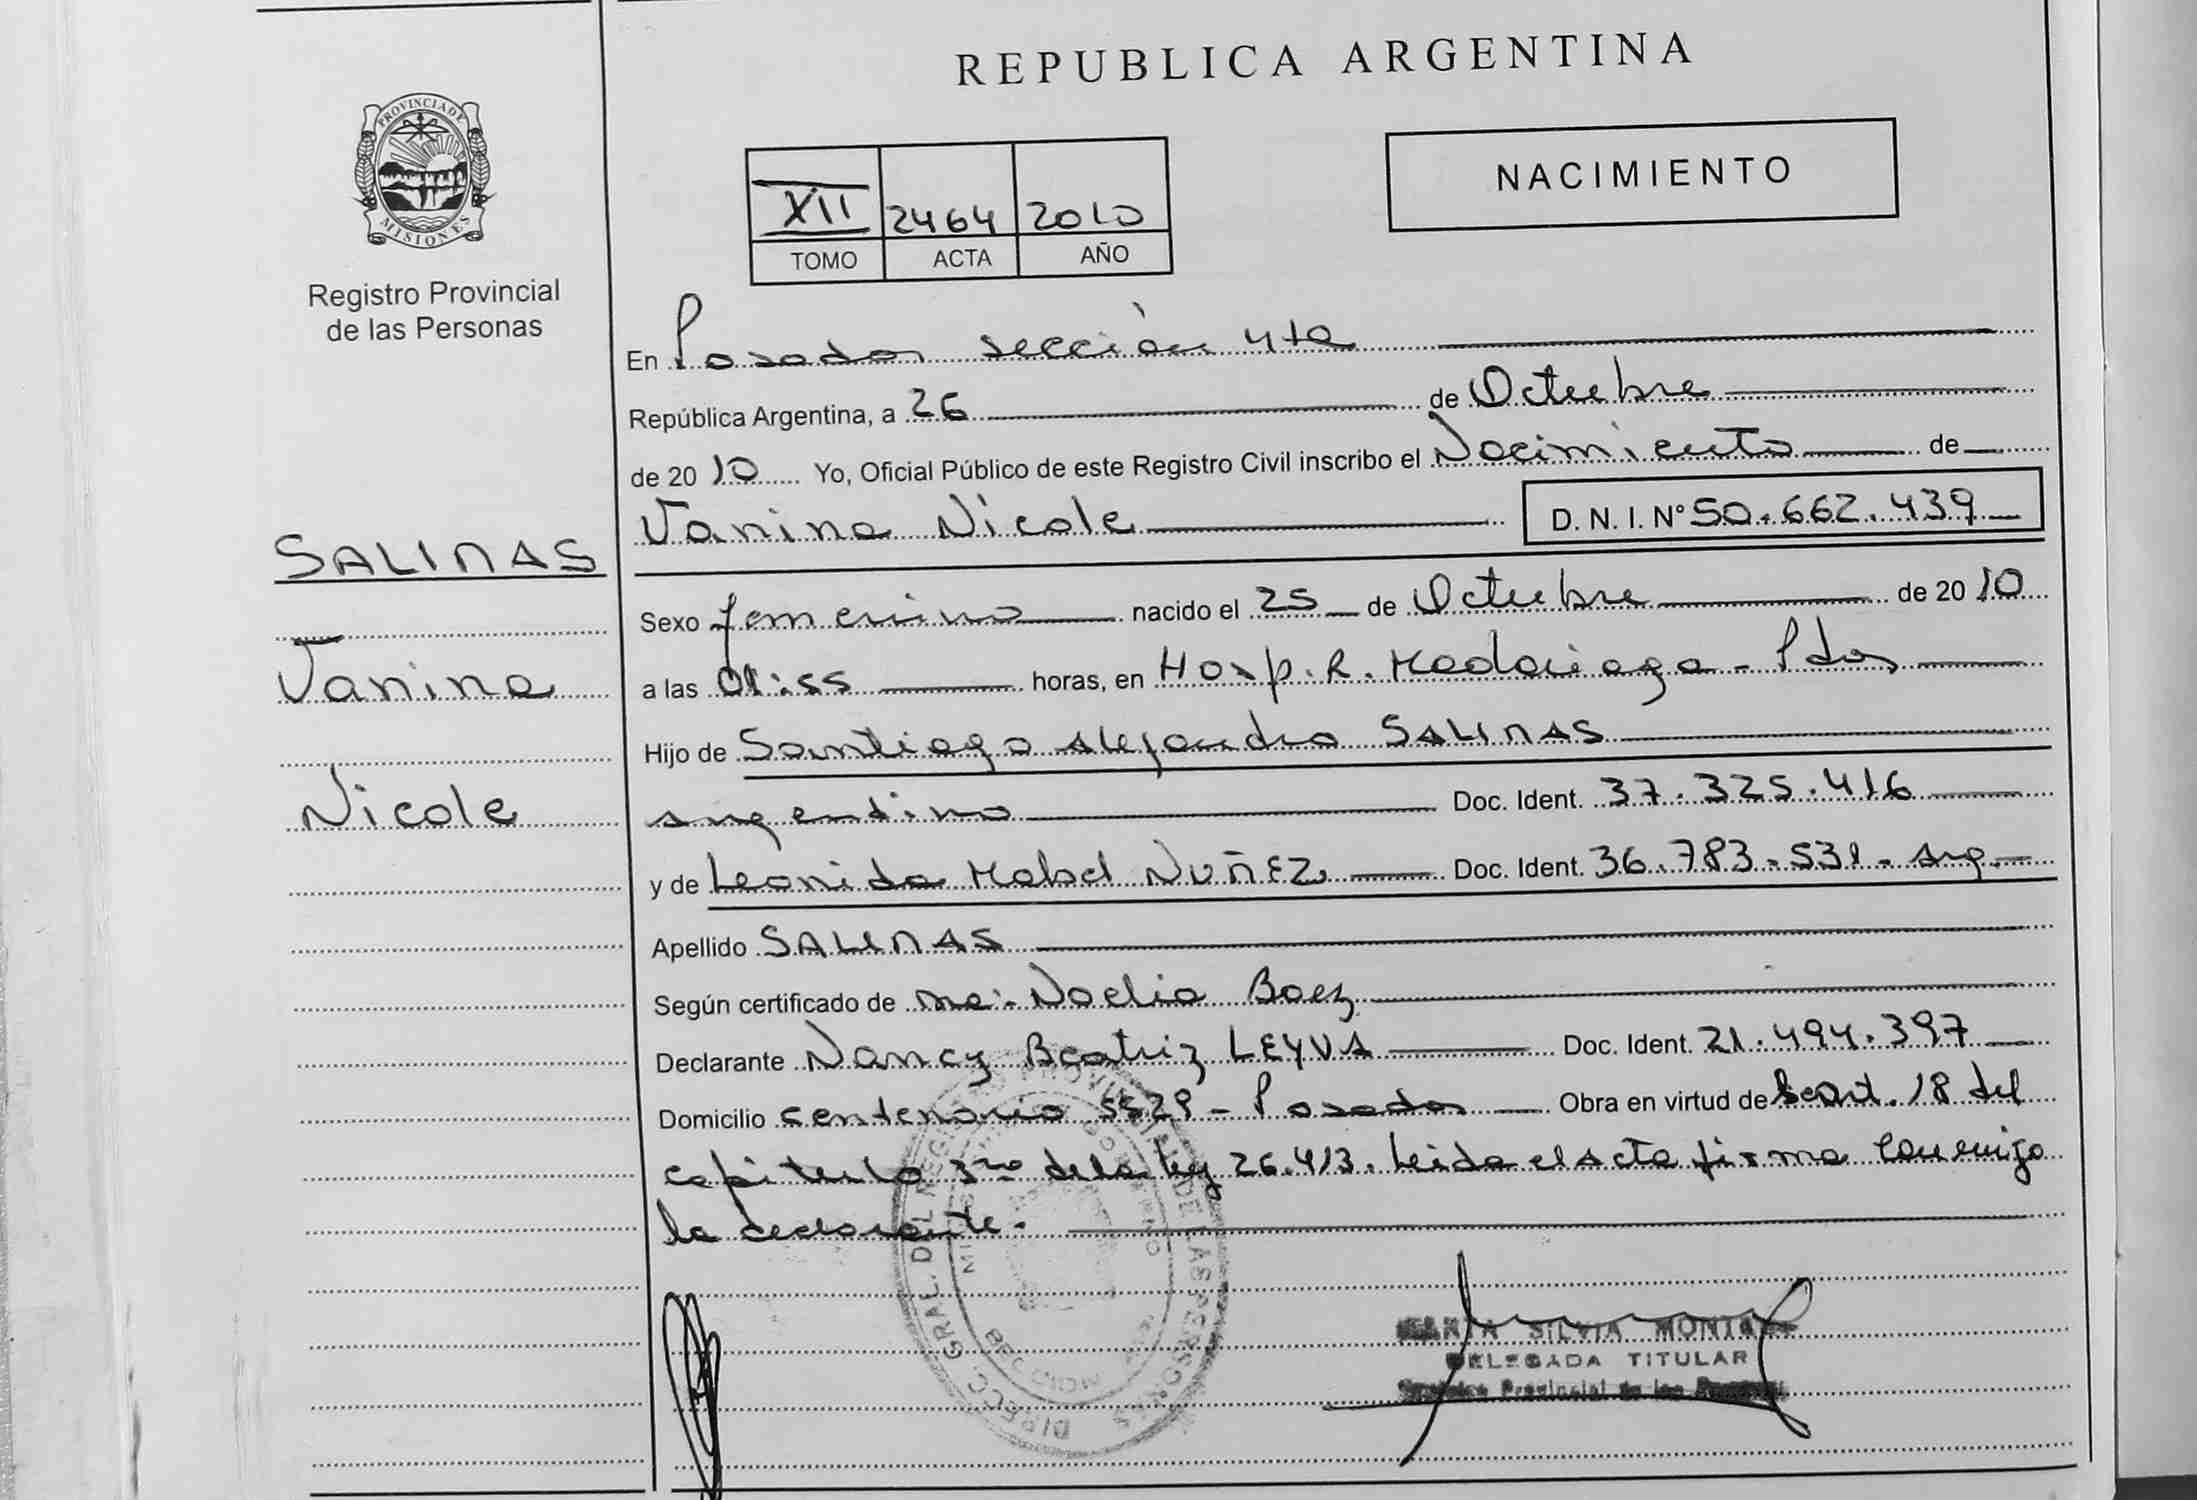 REPUBLICA ARGENTINA
PROVINCIA DE
MISIONES
Registro Provincial
de las Personas
XII 2464 2010
TOMO ACTA AÑO
NACIMIENTO
En Posadas sección 4ta
República Argentina, a 26 de Octubre
de 2010 Yo, Oficial Público de este Registro Civil inscribo el Nacimiento de
Vanina Nicole D. N. I. N° 50.662.439
SALINAS
Vanina
Nicole
Sexo femenino nacido el 25 de Octubre de 2010
a las 01:55 horas, en Hosp. R. Madariaga - Pdas
Hijo de Santiago Alejandro SALINAS
argentino Doc. Ident. 37.325.416
y de Leonida Mabel NUÑEZ Doc. Ident. 36.783.531 - arg.
Apellido SALINAS
Según certificado de Noelia Baez
Declarante Nancy Beatriz LEYVA Doc. Ident. 21.494.397
Domicilio centenario 5529 - Posadas Obra en virtud de art. 18 del
capitulo 3ro de la ley 26.413. Leida el acta firma conmigo
la declarante.
SILVIA
DELEGADA TITULAR